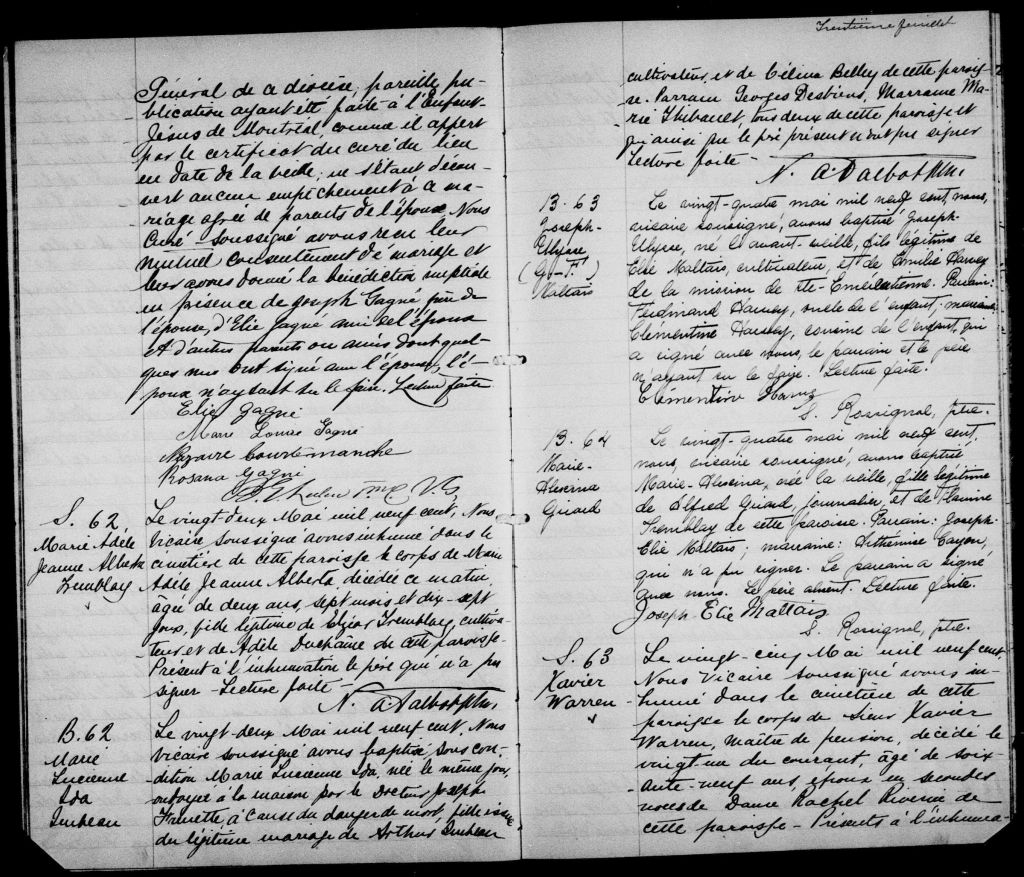 Général de ce diocèse, pareille pu-
blication ayant été faite à l'Enfant-
Jésus de Montréal, comme il appert
par le certificat du curé du lieu
en date de la veille; ne s'étant décou-
vert aucun empêchement à ce ma-
riage agréé de parents de l'époux Nous
Curé soussigné avons reçu leur
mutuel consentement de mariage et
leur avons donné la bénédiction nuptiale
en présence de Joseph Gagné père de
l'épouse, d'Elie Gagné ami de l'époux
et d'autres parents ou amis dont quel-
ques uns ont signé avec l'épouse, l'é-
poux n'ayant su le faire. Lecture faite
Elie Gagné
Marie Louise Gagné
Nazaire Courtemanche
Rosana Gagné
S. 62
Marie Adèle
Jeanne Alberta
Tremblay
Le vingt-deux Mai mil neuf cent, Nous
Vicaire soussigné avons inhumé dans le
cimetière de cette paroisse le corps de Marie
Adèle Jeanne Alberta décédée ce matin,
âgée de deux ans, sept mois et dix-sept
jours, fille légitime de Tremblay, cultiva-
teur et de Adèle Duchaine de cette paroisse.
Présent à l'inhumation le père qui n'a pu
signer - Lecture faite -
N. A. Talbot Ptre.
B. 62
Marie
Lucienne
Ida
Imbeau
Le vingt-deux Mai mil neuf cent, Nous
vicaire soussigné avons baptisé sous con-
dition Marie Lucienne Ida, née le même jour,
ondoyée à la maison par le Docteur Joseph
à cause du danger de mort, fille issue
du légitime mariage de Arthur Imbeau
Trentième feuillet
cultivateur et de Célina Belley de cette parois-
se. Parrain Georges Desbiens, Marraine Ma-
rie Thibault, tous deux de cette paroisse et
qui ainsi que le père présent n'ont pu signer
Lecture faite -
N. A. Talbot Ptre.
B. 63
Joseph-
Ulysse
Maltais
Le vingt-quatre mai mil neuf cent, nous,
vicaire soussigné, avons baptisé Joseph-
Ulysse, né l'avant-veille, fils légitime de
Elie Maltais, cultivateur, et de Emilie Harvey
de la mission de Ste-Emérentienne. Parrain:
Ferdinand Harvey, oncle de l'enfant; marraine:
Clémentine Harvey, cousine de l'enfant, qui
a signé avec nous, le parrain et le père
n'ayant su le faire. Lecture faite.
Clémentine Harvey
S. Rossignol, ptre.
B. 64
Marie-
Alvina
Girard
Le vingt-quatre mai mil neuf cent,
nous, vicaire soussigné, avons baptisé
Marie-Alvina, née la veille, fille légitime
de Alfred Girard, journalier, et de
Tremblay de cette paroisse. Parrain: Joseph-
Elie Maltais; marraine: Arthémise Gagnon,
qui n'a pu signer. Le parrain a signé
avec nous. Le père absent. Lecture faite.
Joseph Elie Maltais
S. Rossignol, ptre.
S. 63
Xavier
Warren
Le vingt-cinq Mai mil neuf cent,
Nous Vicaire soussigné avons in-
humé dans le cimetière de cette
paroisse le corps de Sieur Xavier
Warren, maître de pension, décédé le
vingt un du courant, âgé de soix-
ante-neuf ans, époux en secondes
noces de Dame Rachel de
cette paroisse - Présents à l'inhuma-